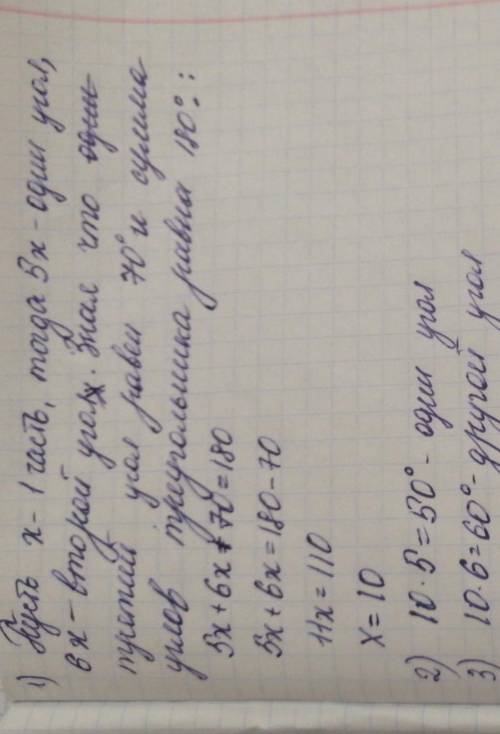 1) Пусть х - 1 часть, тогда 5х - один угол,
6х - второй угол. Зная что один
третий угол равен 70° и сумма
углов треугольника равна 180°:
5х + 6х + 70 = 180
5х + 6х = 180 - 70
11х = 110
х = 10
2) 10 · 5 = 50° - один угол
3) 10 · 6 = 60° - другой угол